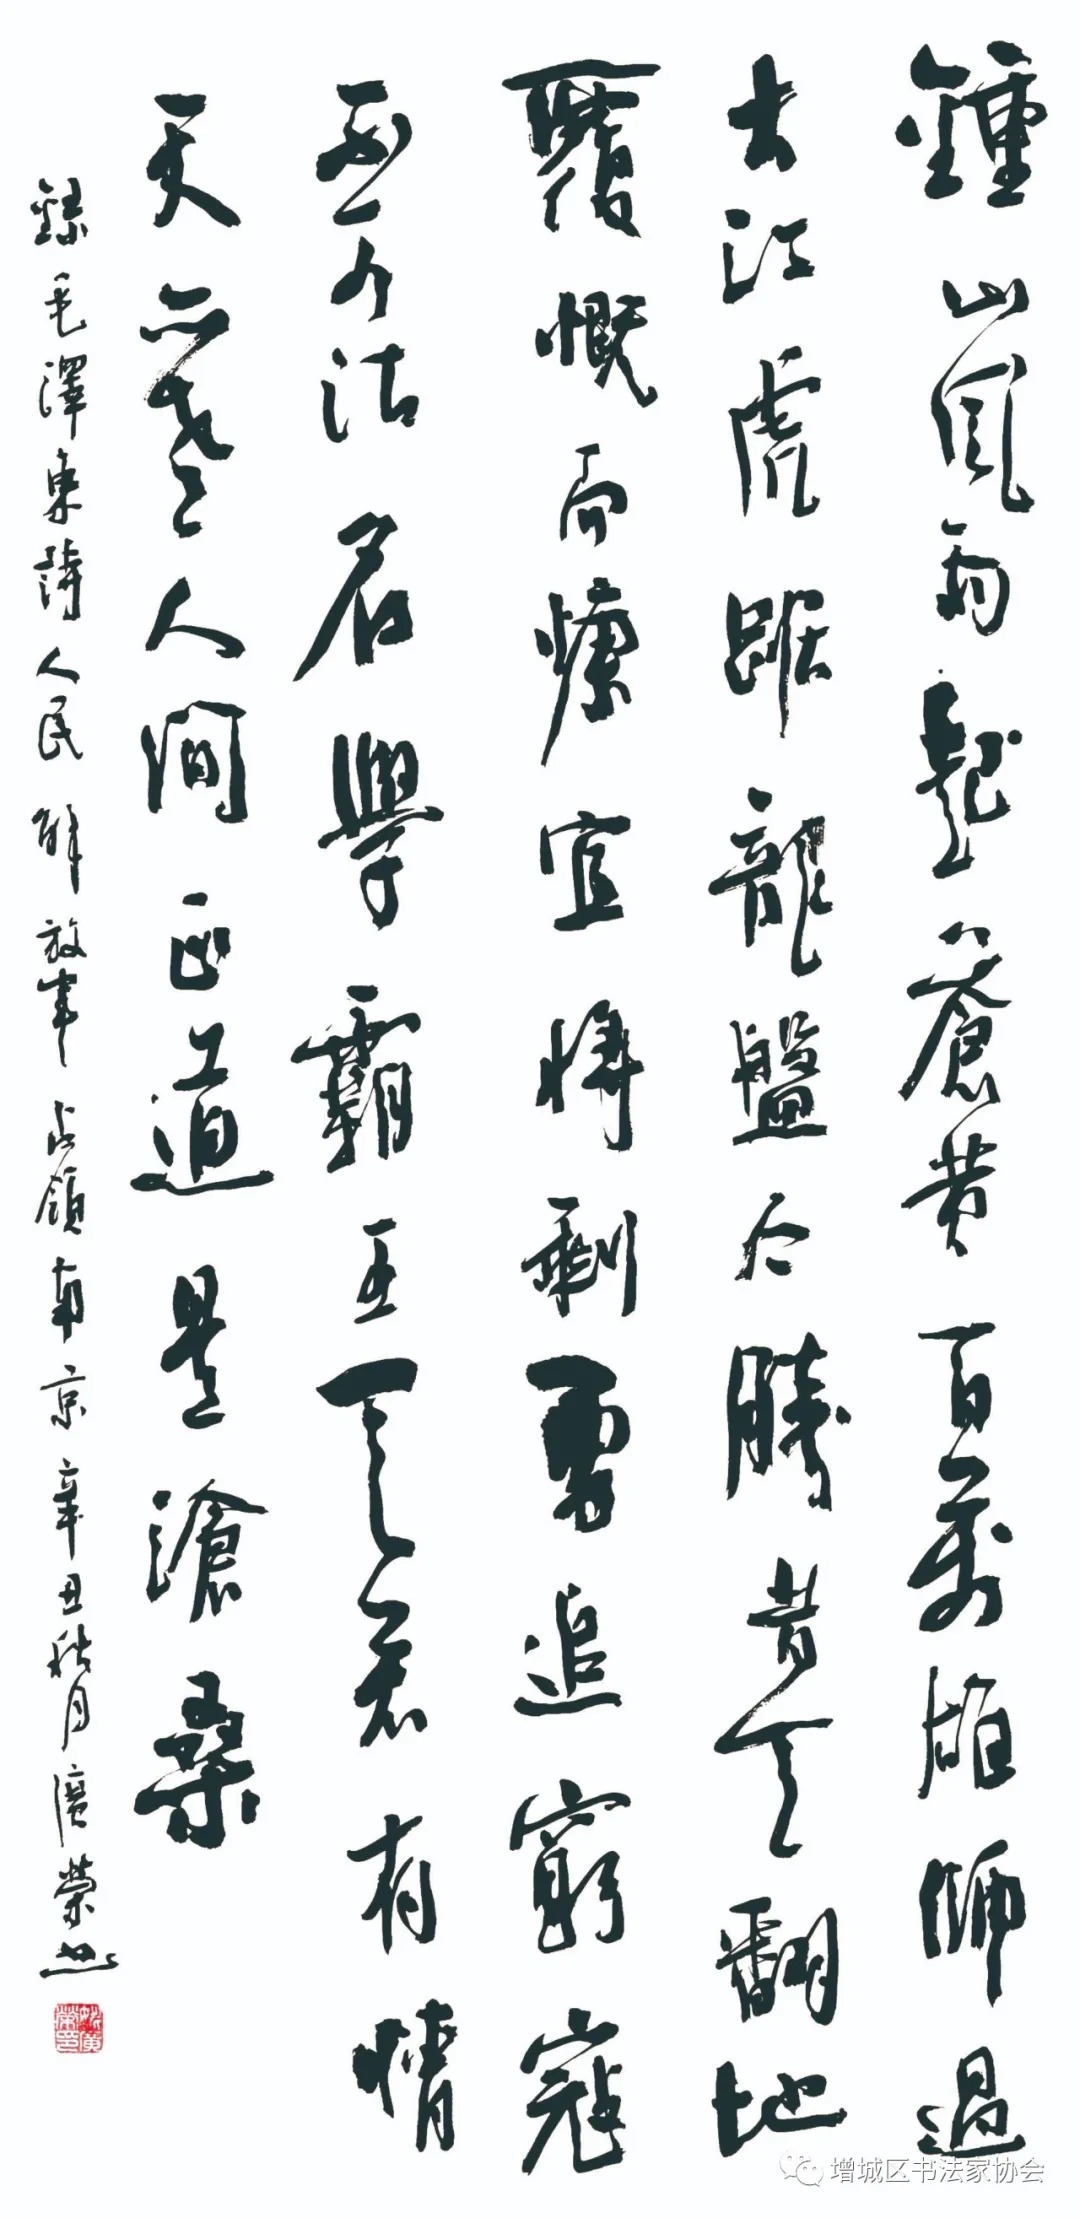 鍾山風雨起蒼黃百萬雄師過
大江虎踞龍盤今勝昔天翻地
覆慨而慷宜將剩勇追窮寇
不可沽名學霸王天若有情
天亦老人間正道是滄桑
錄毛澤東詩人民解放軍占領南京辛丑秋月廣榮
增城区书法家协会